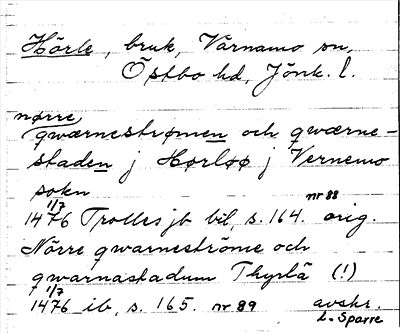 Hörle, bruk, Värnamo sn,
Östbo hd, Jönk. l.
nørre
qwærnestrømen och qwærne-
staden j Hørløø j Vernemo
sokn
1/7 nr 88
1476 Trolles jb bil, s. 164. orig.
Nörre qwarneströme och
qwarnastadum Thyrlä (!)
1/7
1476 ib, s. 165. nr 89 avskr.
L. Sparre